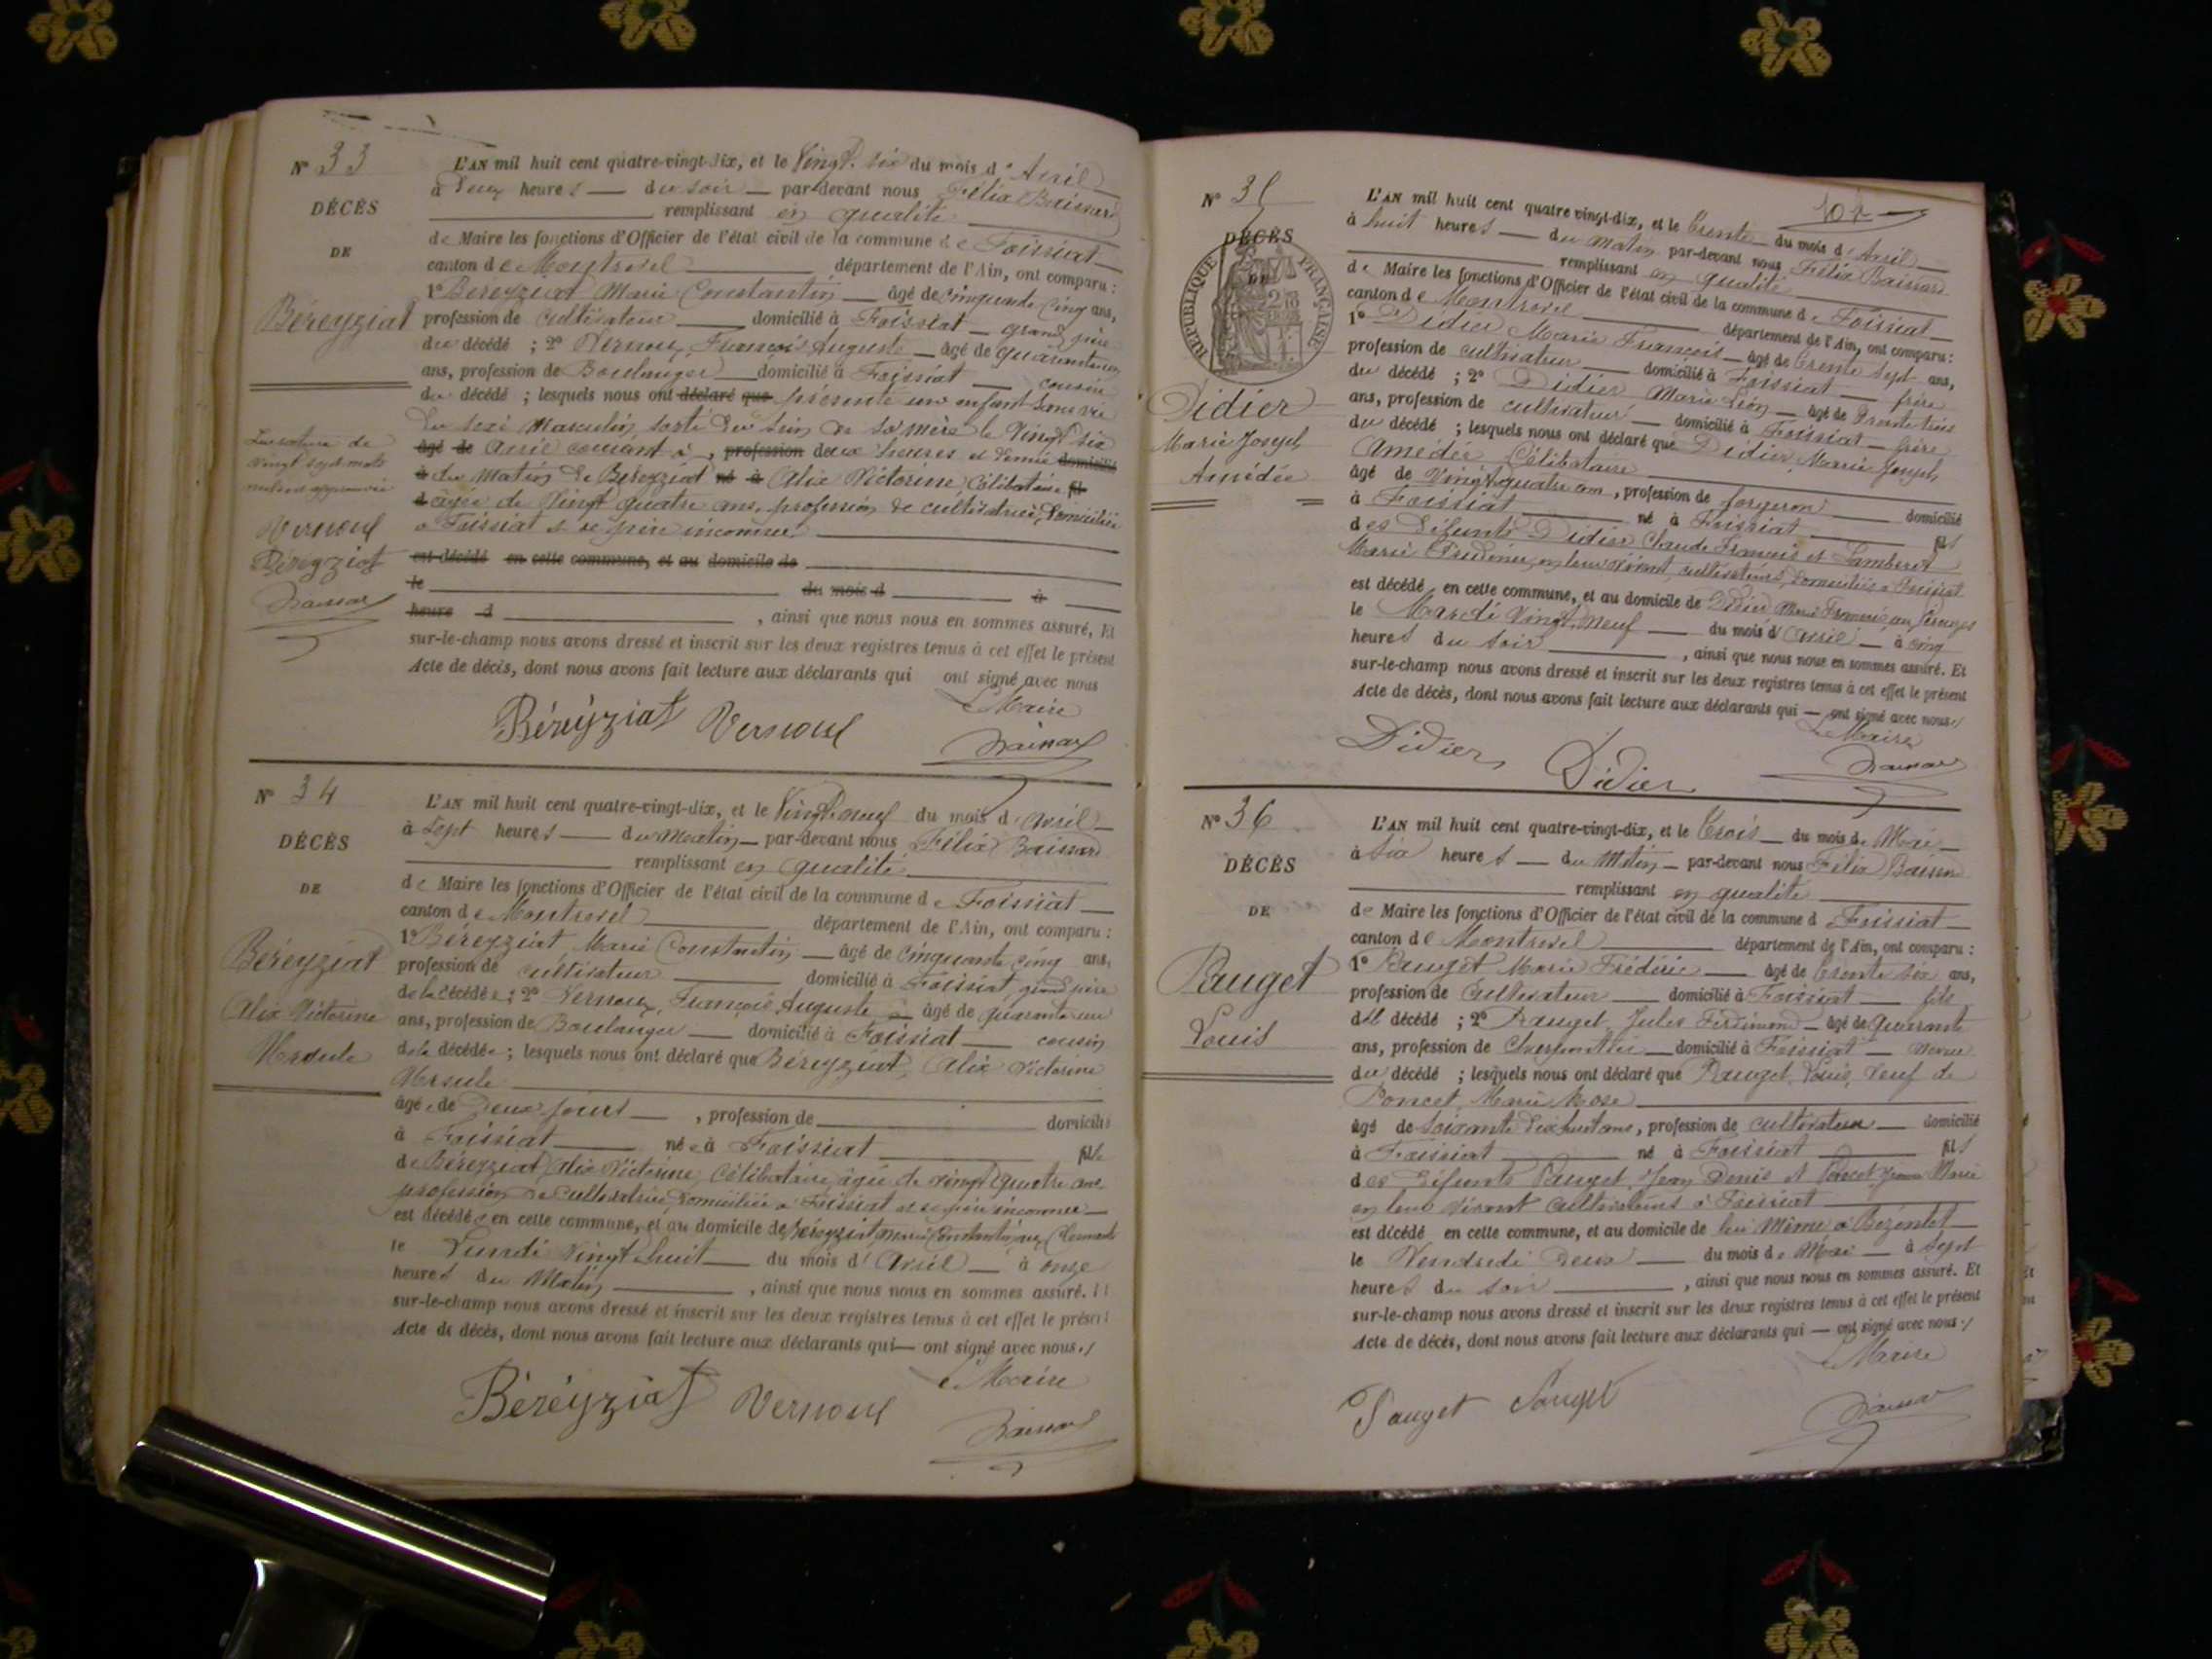 N° 33
DÉCÈS
DE
Béreyziat
La rature de
vingt sept mots
Vernoux
Béreyziat
L'AN mil huit cent quatre-vingt-dix, et le Vingt-six du mois d'Avril
à Deux heures du soir par-devant nous Félix Baissard
remplissant en qualité
de Maire les fonctions d'Officier de l'état civil de la commune de Foissiat
canton de Montrevel département de l'Ain, ont comparu :
1° Béreyziat Marie Constantin âgé de Cinquante Cinq ans,
profession de Cultivateur domicilié à Foissiat grand père
du décédé ; 2° Vernoux, François Auguste âgé de quarante un
ans, profession de Boulanger domicilié à Foissiat cousin
du décédé ; lesquels nous ont déclaré que présenté un enfant sans vie
du sexe Masculin sorti du sein de sa mère le Vingt six
âgé de Avril courant à , profession deux heures et demie domicilié
à du Matin de Béreyziat né à Alix Victorine, Célibataire fil
d âgée de Vingt quatre ans, profession de cultivatrice, domiciliée
à Foissiat & de père inconnu
est décédé en cette commune, et au domicile de
le du mois d à
heure d , ainsi que nous nous en sommes assuré, Et
sur-le-champ nous avons dressé et inscrit sur les deux registres tenus à cet effet le présent
Acte de décès, dont nous avons fait lecture aux déclarants qui ont signé avec nous
Le Maire
Béréyziat Vernoux
N° 34
DÉCÈS
DE
Béreyziat
Alix Victorine
Ursule
L'AN mil huit cent quatre-vingt-dix, et le Vingt neuf du mois d'Avril
à Sept heures du Matin par-devant nous Félix Baissard
remplissant en qualité
de Maire les fonctions d'Officier de l'état civil de la commune de Foissiat
canton de Montrevel département de l'Ain, ont comparu :
1° Béreyziat Marie Constantin âgé de Cinquante cinq ans,
profession de cultivateur domicilié à Foissiat, grand père
de la décédée ; 2° Vernoux, François Auguste âgé de quarante un
ans, profession de Boulanger domicilié à Foissiat cousin
de la décédée ; lesquels nous ont déclaré que Béreyziat, Alix Victorine
Ursule
âgée de Deux jours , profession de domicilié
à Foissiat née à Foissiat fille
de Béreyziat Alix Victorine, Célibataire, âgée de vingt quatre ans
profession de Cultivatrice, domiciliée à Foissiat et de père inconnu
est décédée en cette commune, et au domicile de Béreyziat Marie Constantin, aux
le Lundi Vingt huit du mois d'Avril à onze
heures du Matin , ainsi que nous nous en sommes assuré. Et
sur-le-champ nous avons dressé et inscrit sur les deux registres tenus à cet effet le présent
Acte de décès, dont nous avons fait lecture aux déclarants qui ont signé avec nous
Le Maire
Béréyziat Vernoux
N° 35
DÉCÈS
DE
RÉPUBLIQUE FRANÇAISE
Didier
Marie Joseph
Amédée
L'AN mil huit cent quatre vingt-dix, et le Trente du mois d'Avril
à huit heures du matin par-devant nous Félix Baissard
remplissant en qualité
de Maire les fonctions d'Officier de l'état civil de la commune de Foissiat
canton de Montrevel département de l'Ain, ont comparu :
1° Didier Marie François âgé de Trente sept ans,
profession de cultivateur domicilié à Foissiat frère
du décédé ; 2° Didier Marie Léon âgé de Trente trois
ans, profession de cultivateur domicilié à Foissiat frère
du décédé ; lesquels nous ont déclaré que Didier, Marie Joseph
Amédée Célibataire
âgé de Vingt quatre ans, profession de forgeron domicilié
à Foissiat né à Foissiat fils
des défunts Didier Claude François et
Marie en leur vivant cultivateurs, domiciliés à Foissiat
est décédé en cette commune, et au domicile de Didier Marie François
le Mardi Vingt neuf du mois d'Avril à cinq
heures du soir , ainsi que nous nous en sommes assuré. Et
sur-le-champ nous avons dressé et inscrit sur les deux registres tenus à cet effet le présent
Acte de décès, dont nous avons fait lecture aux déclarants qui ont signé avec nous
Le Maire
Didier Didier
N° 36
DÉCÈS
DE
Pauget
Louis
L'AN mil huit cent quatre-vingt-dix, et le Trois du mois de Mai
à six heures du Matin par-devant nous Félix Baissard
remplissant en qualité
de Maire les fonctions d'Officier de l'état civil de la commune de Foissiat
canton de Montrevel département de l'Ain, ont comparu :
1° Pauget Marie Frédéric âgé de Trente six ans,
profession de Cultivateur domicilié à Foissiat fils
du décédé ; 2° Pauget, Jules Ferdinand âgé de Quarante
ans, profession de Charpentier domicilié à Foissiat neveu
du décédé ; lesquels nous ont déclaré que Pauget, Louis, veuf de
Poncet, Marie Rose
âgé de Soixante dix huit ans, profession de cultivateur domicilié
à Foissiat né à Foissiat fils
des défunts Pauget, Jean Denis et Poncet Marie
en leur vivant cultivateurs à Foissiat
est décédé en cette commune, et au domicile de lui même à
le Vendredi Deux du mois de Mai à Sept
heures du soir , ainsi que nous nous en sommes assuré. Et
sur-le-champ nous avons dressé et inscrit sur les deux registres tenus à cet effet le présent
Acte de décès, dont nous avons fait lecture aux déclarants qui ont signé avec nous
Le Maire
Pauget Pauget